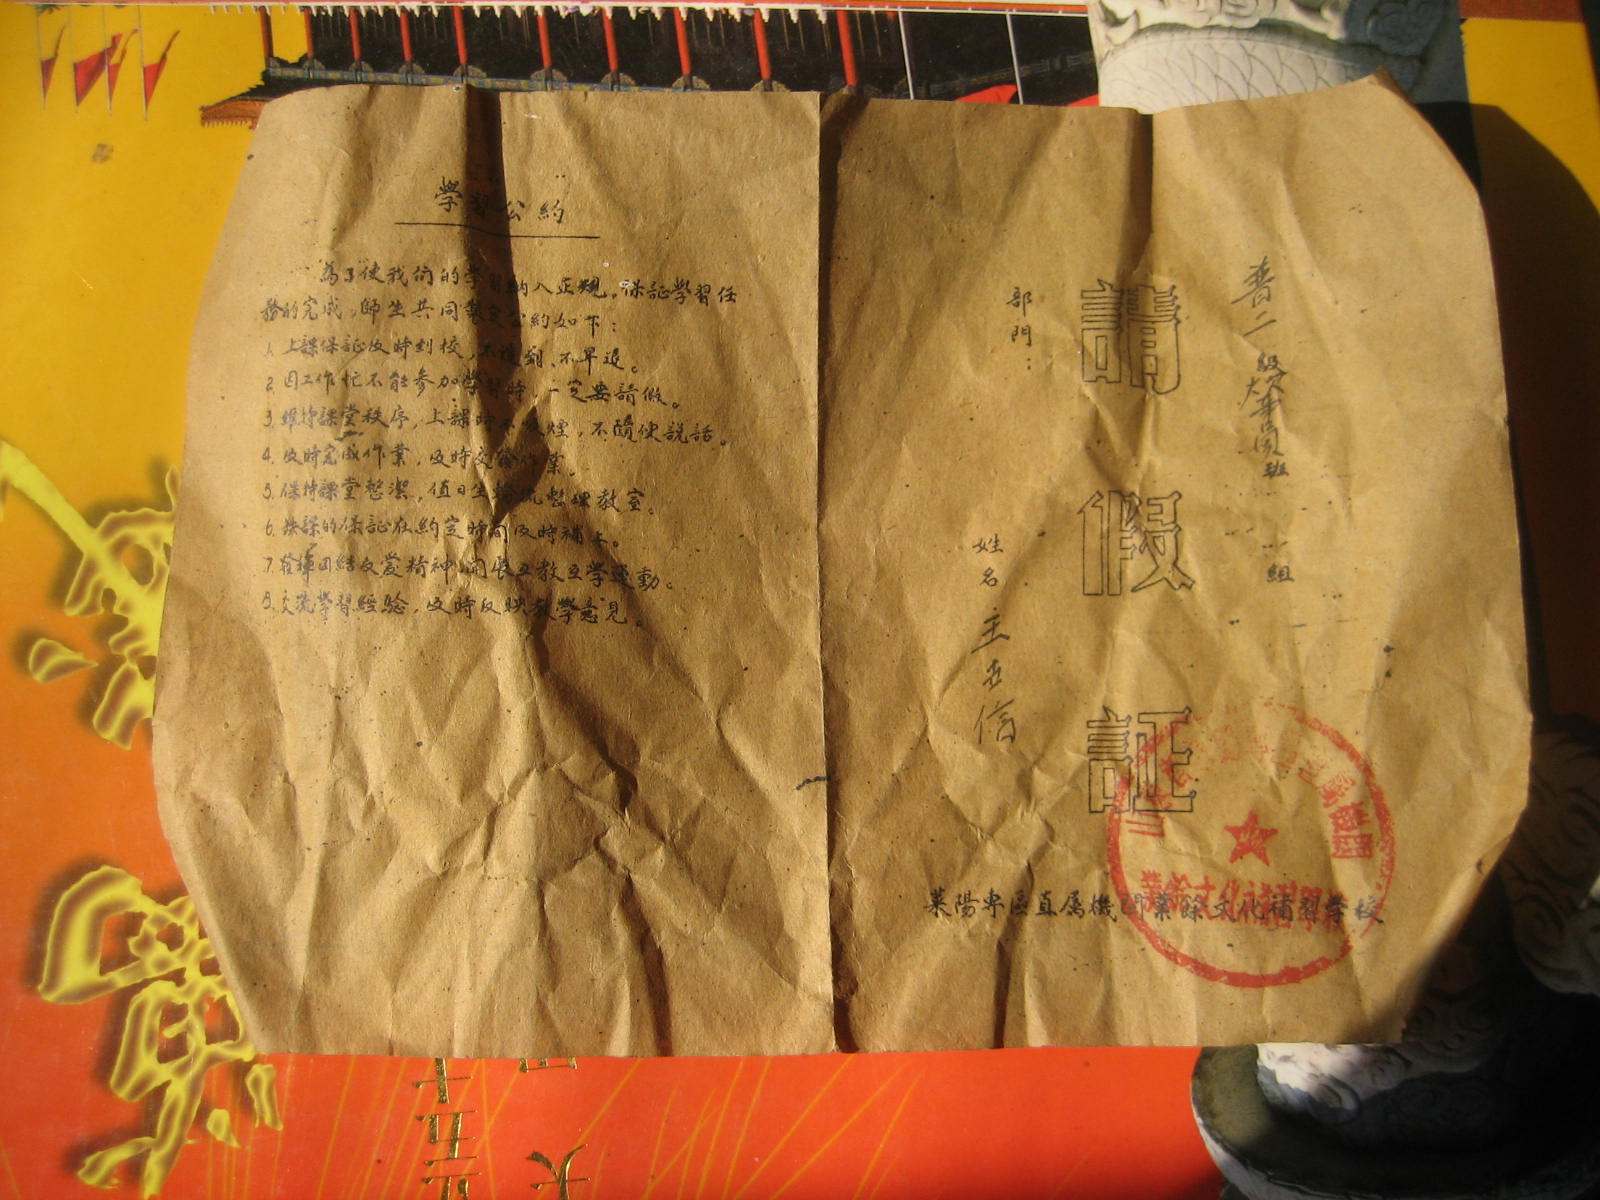 學習公約
為了使我们的學習納入正規。保証學習任
務的完成，師生共同製定公約如下：
1. 上課保証及時到校，不遲到、不早退。
2. 因工作忙不能参加學習時，一定要請假。
3. 維持課堂秩序，上課時不吸煙，不隨便説話。
4. 及時完成作業，及時交給作業。
5. 保持課堂整潔，值日生輪流整理教室。
6. 缺課的保証在約定時間及時補上。
7. 發揮团結友爱精神，開展互教互學運動。
8. 交流學習經驗，及時反映教學意見。
級
班
組
請假証
部門：
姓名
信
萊陽專區直属機関業餘文化補習学校
業餘文化補習學校